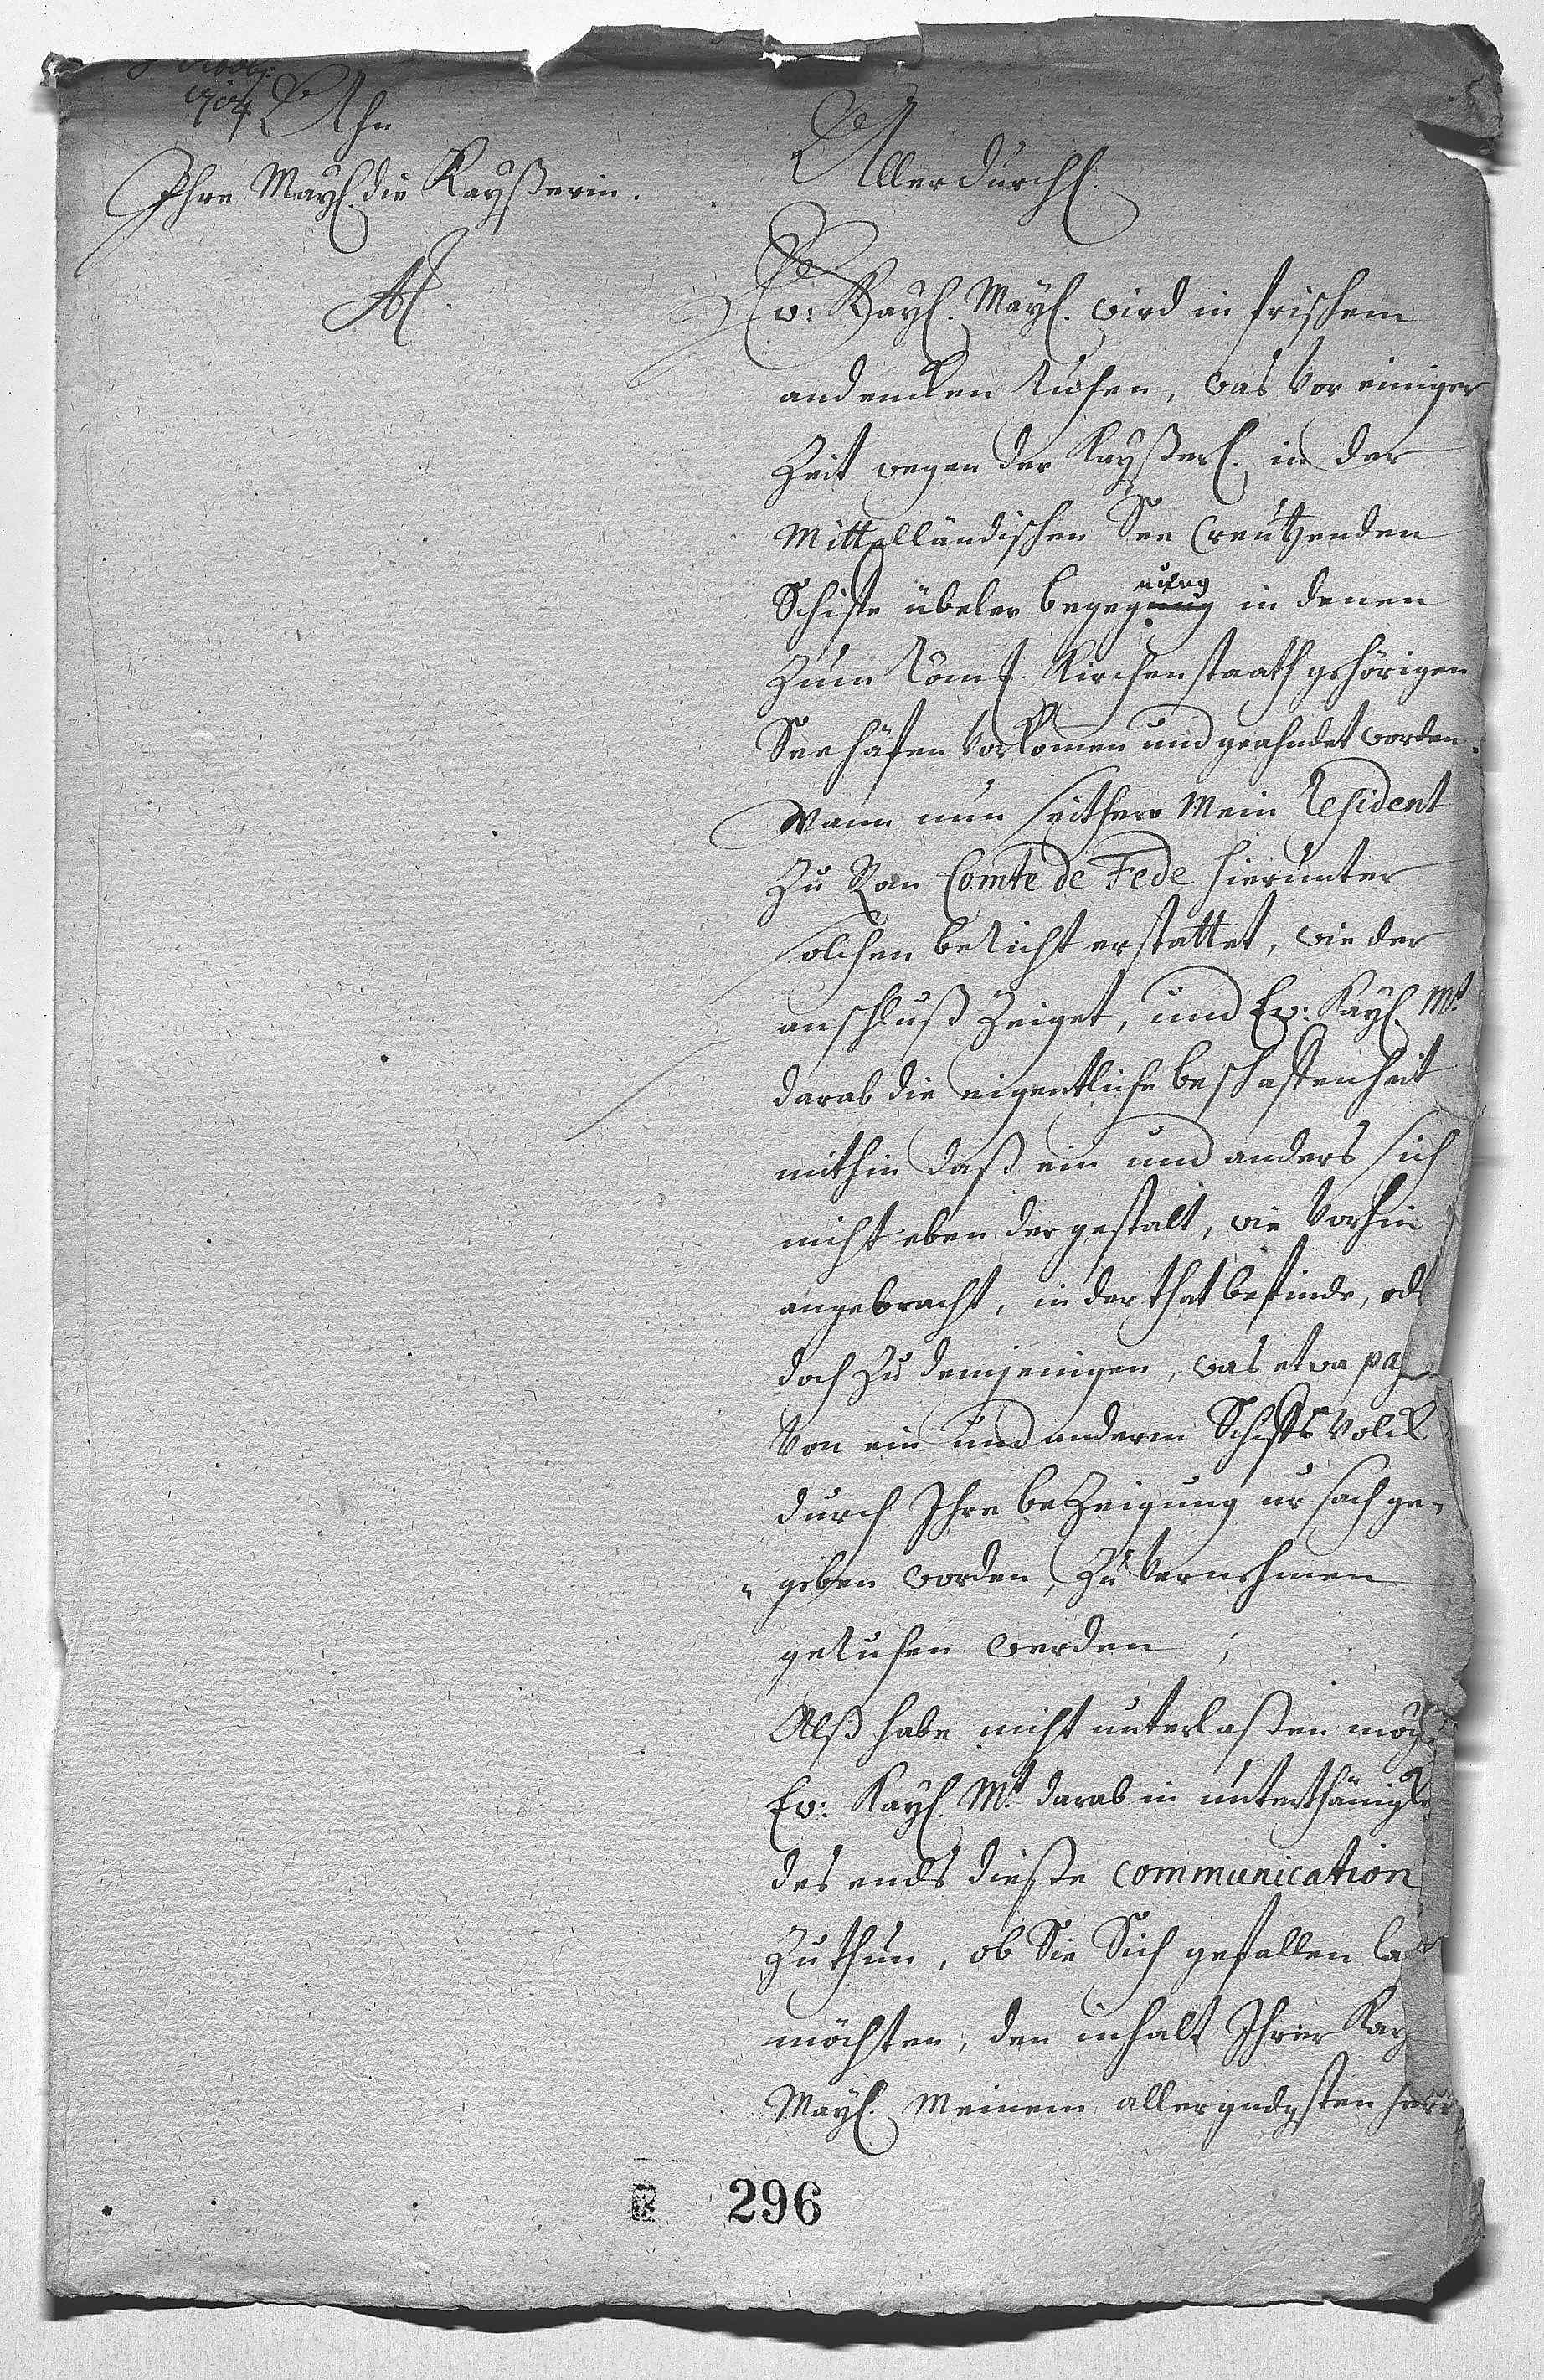 1704
Ahn
Ihre Mayl. die Kayßerin.
Allerdurchl.
Ew: Kayl. Mayl. wird in frischem
andencken ruhen, was vor einiger
Zeit wegen der Kayßerl. in der
Mittelländischen See Creutzenden
Schiffe übeler begegnung in denen
Zum Röml. Kirchenstaath gehörigen
Seehäfen vorkomen und geahndet worden.
Wann nun seithero Mein Resident
Zu Rom Comte de Fede hierunter
solchen bericht erstattet, wie der
anschluß Zeiget, und Ew: Kayl. Mt.
darab die eigentliche beschaffenheit
mithin daß ein und anders sich
nicht eben dergestalt, wie vorhin
angebracht, in der that befinde, od
doch Zu demjenigen, was etwa
von ein und anderm Schiffs Volck
durch Ihre beZeigung ursach ge-
-geben worden, Zu vernehmen
geruhen werden;
Alß habe nicht unterlaßen
Ew: Kayl. Mt. darab in
des ends dieße communication
Zuthun, ob Sie Sich gefallen
möchten, den inhalt Ihrer Kay
Mayl. Meinem allergndgsten
296